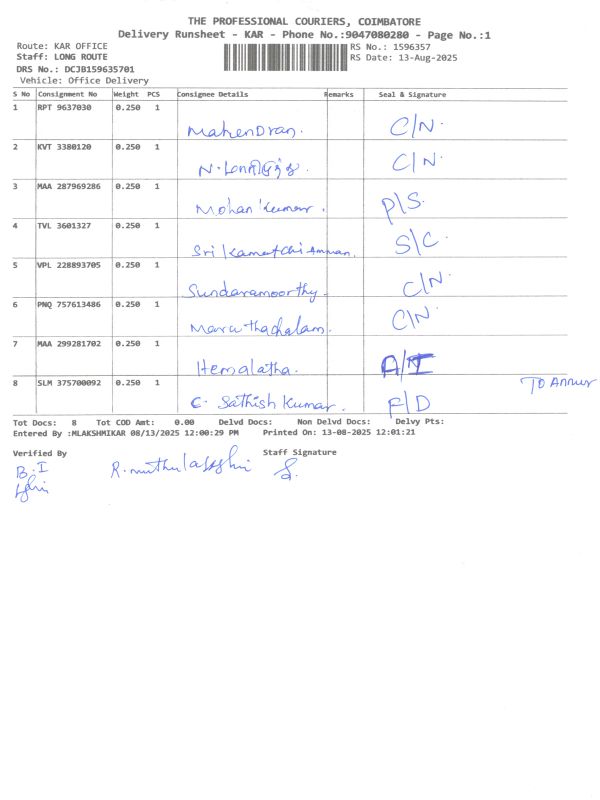 THE PROFESSIONAL COURIERS, COIMBATORE
Delivery Runsheet - KAR - Phone No.:9047080280 - Page No.:1
Route: KAR OFFICE RS No.: 1596357
Staff: LONG ROUTE RS Date: 13-Aug-2025
DRS No.: DCJB159635701
Vehicle: Office Delivery
S No Consignment No Weight PCS Consignee Details Remarks Seal & Signature
1 RPT 9637030 0.250 1 Mahendran. C/N.
2 KVT 3380120 0.250 1 N. C/N.
3 MAA 287969286 0.250 1 Mohan Kumar. P/S.
4 TVL 3601327 0.250 1 Sri Kamatchi Amman. S/C
5 VPL 228893705 0.250 1 Sundaramoorthy. C/N.
6 PNQ 757613486 0.250 1 Maruthachalam. C/N.
7 MAA 299281702 0.250 1 Hemalatha.
8 SLM 375700092 0.250 1 C. Sathish Kumar. F/D To Annur
Tot Docs: 8 Tot COD Amt: 0.00 Delvd Docs: Non Delvd Docs: Delvy Pts:
Entered By :MLAKSHMIKAR 08/13/2025 12:00:29 PM Printed On: 13-08-2025 12:01:21
Verified By Staff Signature
B.I